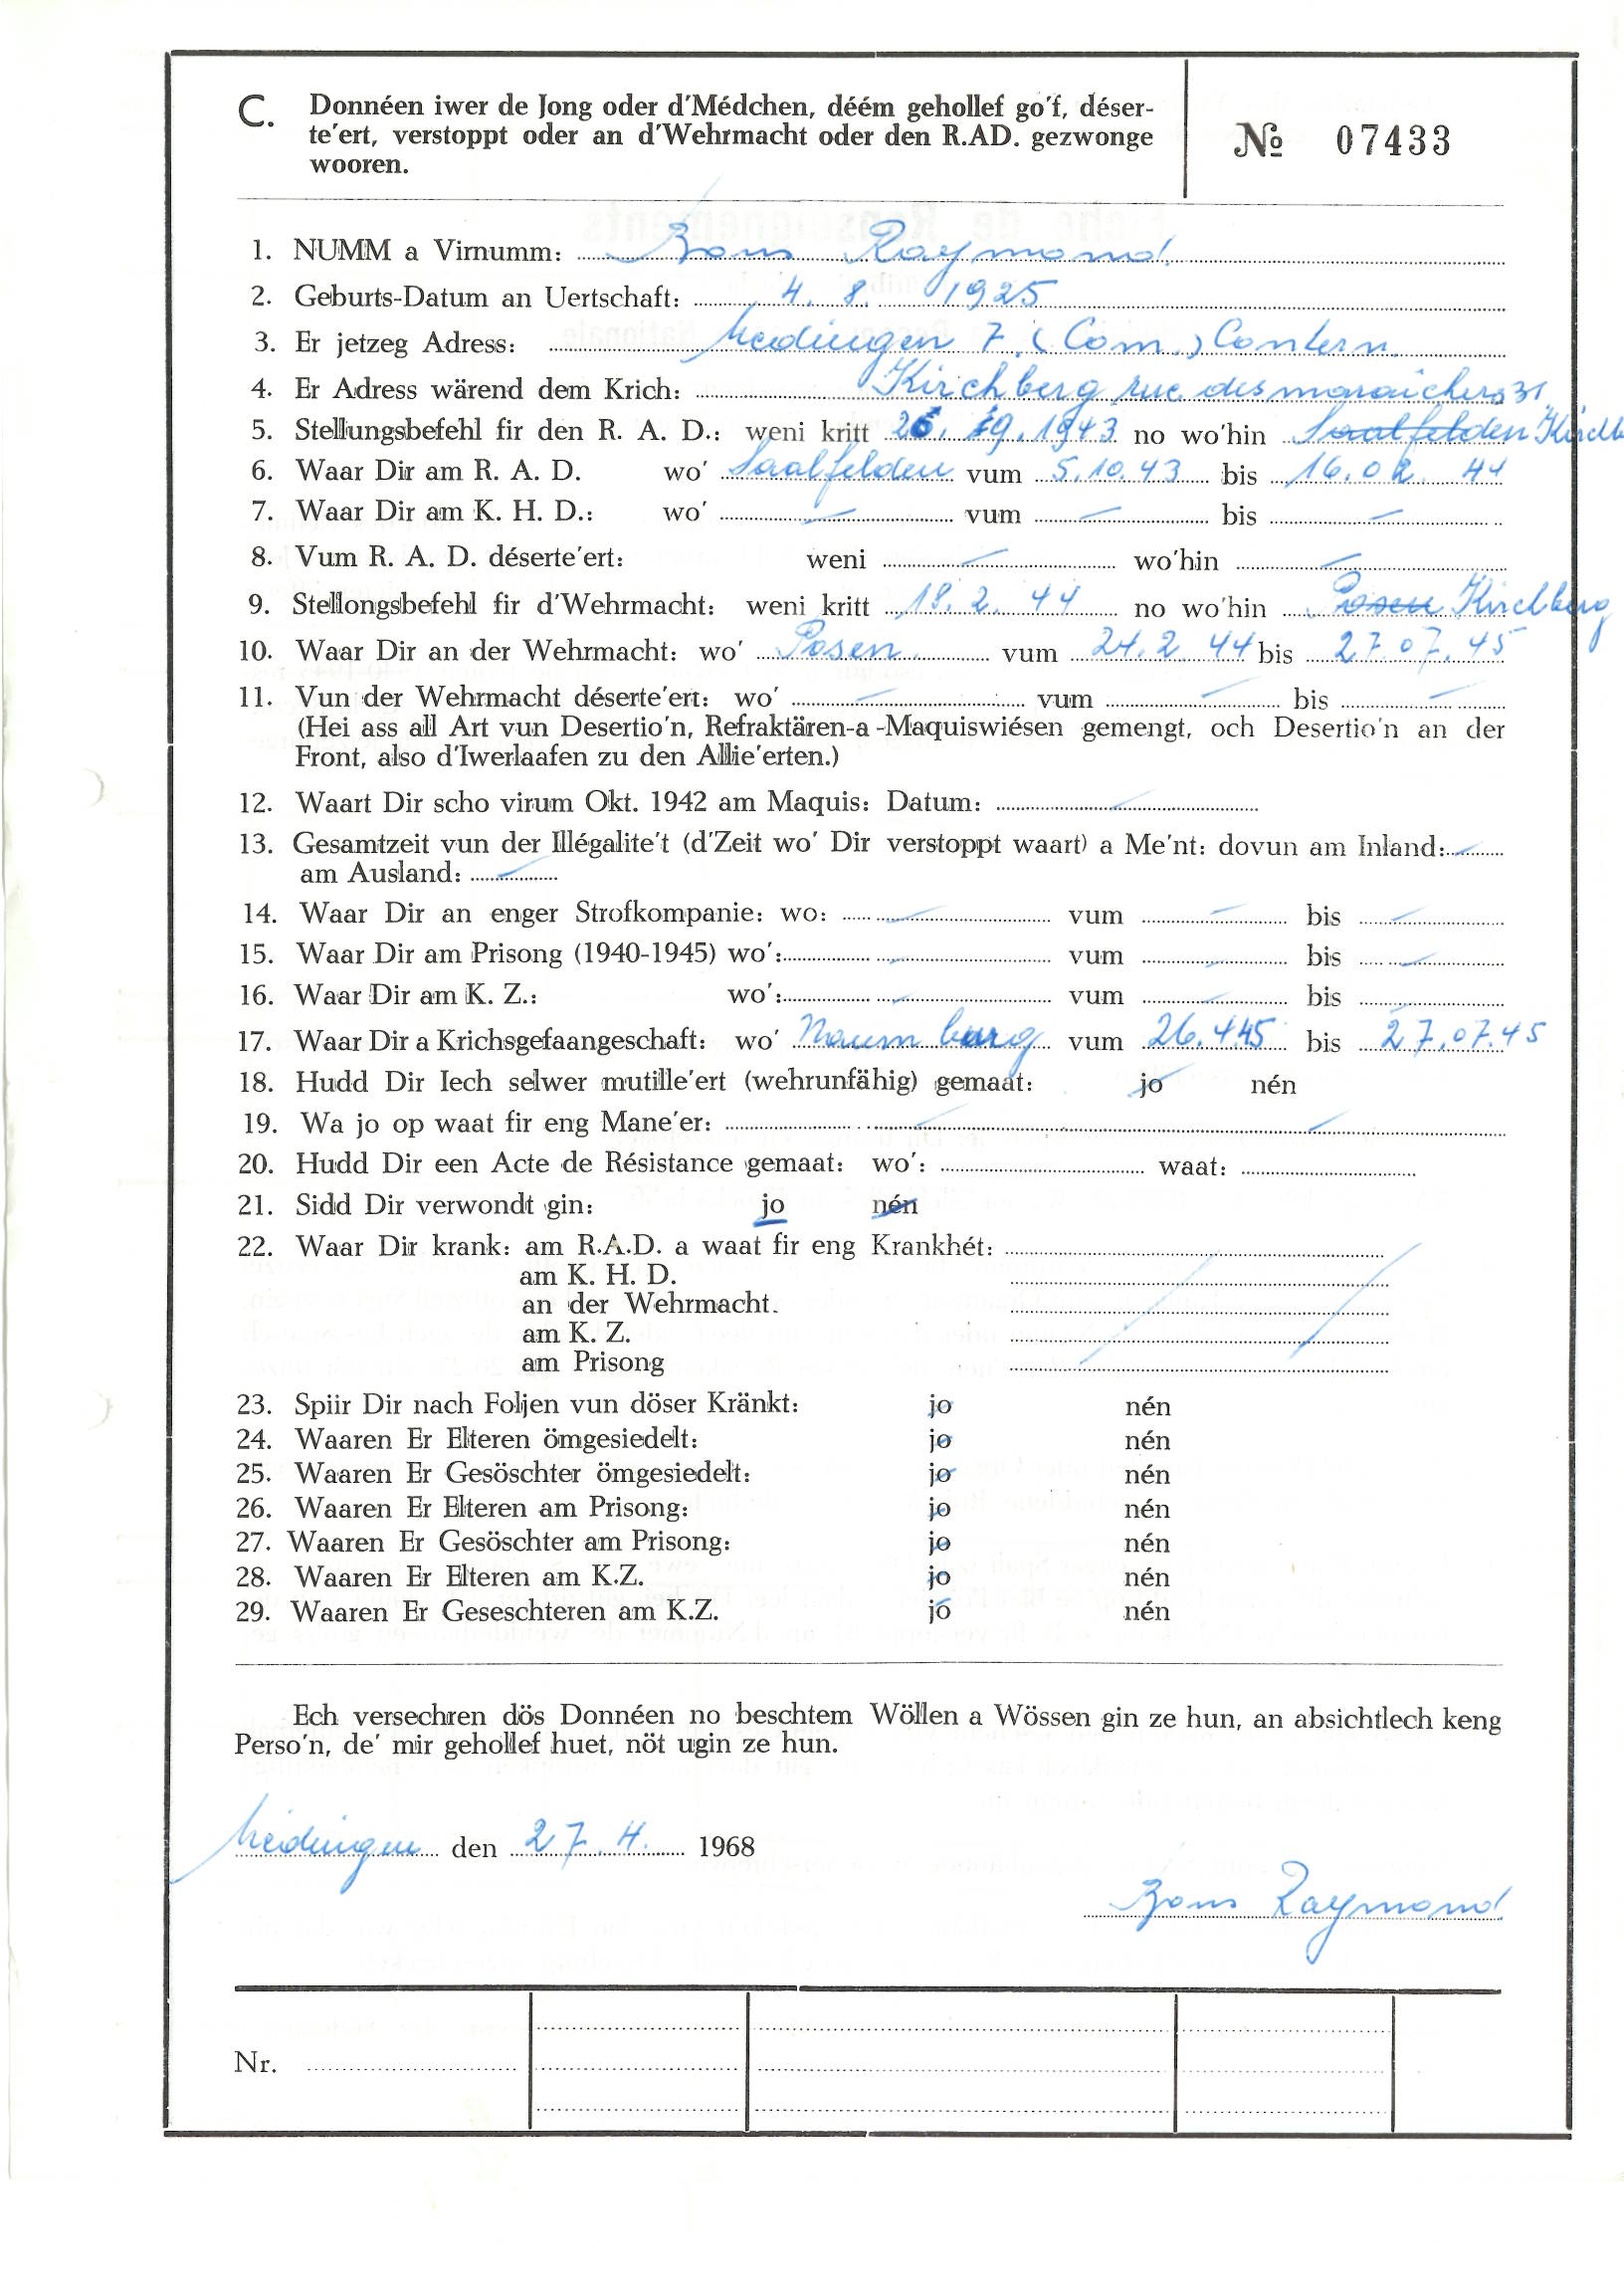 C. Donnéen iwer de Jong oder d'Médchen, déém gehollef go'f, déser-
te'ert, verstoppt oder an d'Wehrmacht oder den R.AD. gezwonge
wooren.
№ 07433
1. NUMM a Virnumm: Bons Raymond
2. Geburts-Datum an Uertschaft: 4. 8. 1925
3. Er jetzeg Adress: Medingen 7 (Com.) Contern
4. Er Adress wärend dem Krich: Kirchberg rue des maraîchers 31
5. Stellungsbefehl fir den R. A. D.: weni kritt 26. 9. 1943 no wo'hin Saalfelden Kirchb
6. Waar Dir am R. A. D. wo' Saalfelden vum 5.10.43 bis 16.02.44
7. Waar Dir am K. H. D.: wo' – vum – bis –
8. Vum R. A. D. déserte'ert: weni – wo'hin –
9. Stellongsbefehl fir d'Wehrmacht: weni kritt 18. 2. 44 no wo'hin Posen Kirchberg
10. Waar Dir an der Wehrmacht: wo' Posen vum 24. 2. 44 bis 27. 07. 45
11. Vun der Wehrmacht déserte'ert: wo' – vum – bis –
(Hei ass all Art vun Desertio'n, Refraktären-a-Maquiswiésen gemengt, och Desertio'n an der
Front, also d'Iwerlaafen zu den Allie'erten.)
12. Waart Dir scho virum Okt. 1942 am Maquis: Datum: –
13. Gesamtzeit vun der Illégalite't (d'Zeit wo' Dir verstoppt waart) a Me'nt: dovun am Inland: –
am Ausland: –
14. Waar Dir an enger Strofkompanie: wo: – vum – bis –
15. Waar Dir am Prisong (1940-1945) wo': – vum – bis –
16. Waar Dir am K. Z.: wo': – vum – bis –
17. Waar Dir a Krichsgefaangeschaft: wo' Naumburg vum 26.4.45 bis 27.07.45
18. Hudd Dir Iech selwer mutille'ert (wehrunfähig) gemaat: jo nén
19. Wa jo op waat fir eng Mane'er: – –
20. Hudd Dir een Acte de Résistance gemaat: wo': waat:
21. Sidd Dir verwondt gin: jo nén
22. Waar Dir krank: am R.A.D. a waat fir eng Krankhét:
am K. H. D.
an der Wehrmacht.
am K. Z.
am Prisong
23. Spiir Dir nach Foljen vun döser Kränkt: jo nén
24. Waaren Er Elteren ömgesiedelt: jo nén
25. Waaren Er Gesöschter ömgesiedelt: jo nén
26. Waaren Er Elteren am Prisong: jo nén
27. Waaren Er Gesöschter am Prisong: jo nén
28. Waaren Er Elteren am K.Z. jo nén
29. Waaren Er Geseschteren am K.Z. jo nén
Ech versechren dös Donnéen no beschtem Wöllen a Wössen gin ze hun, an absichtlech keng
Perso'n, de' mir gehollef huet, nöt ugin ze hun.
Medingen den 27. 4. 1968
Bons Raymond
Nr.